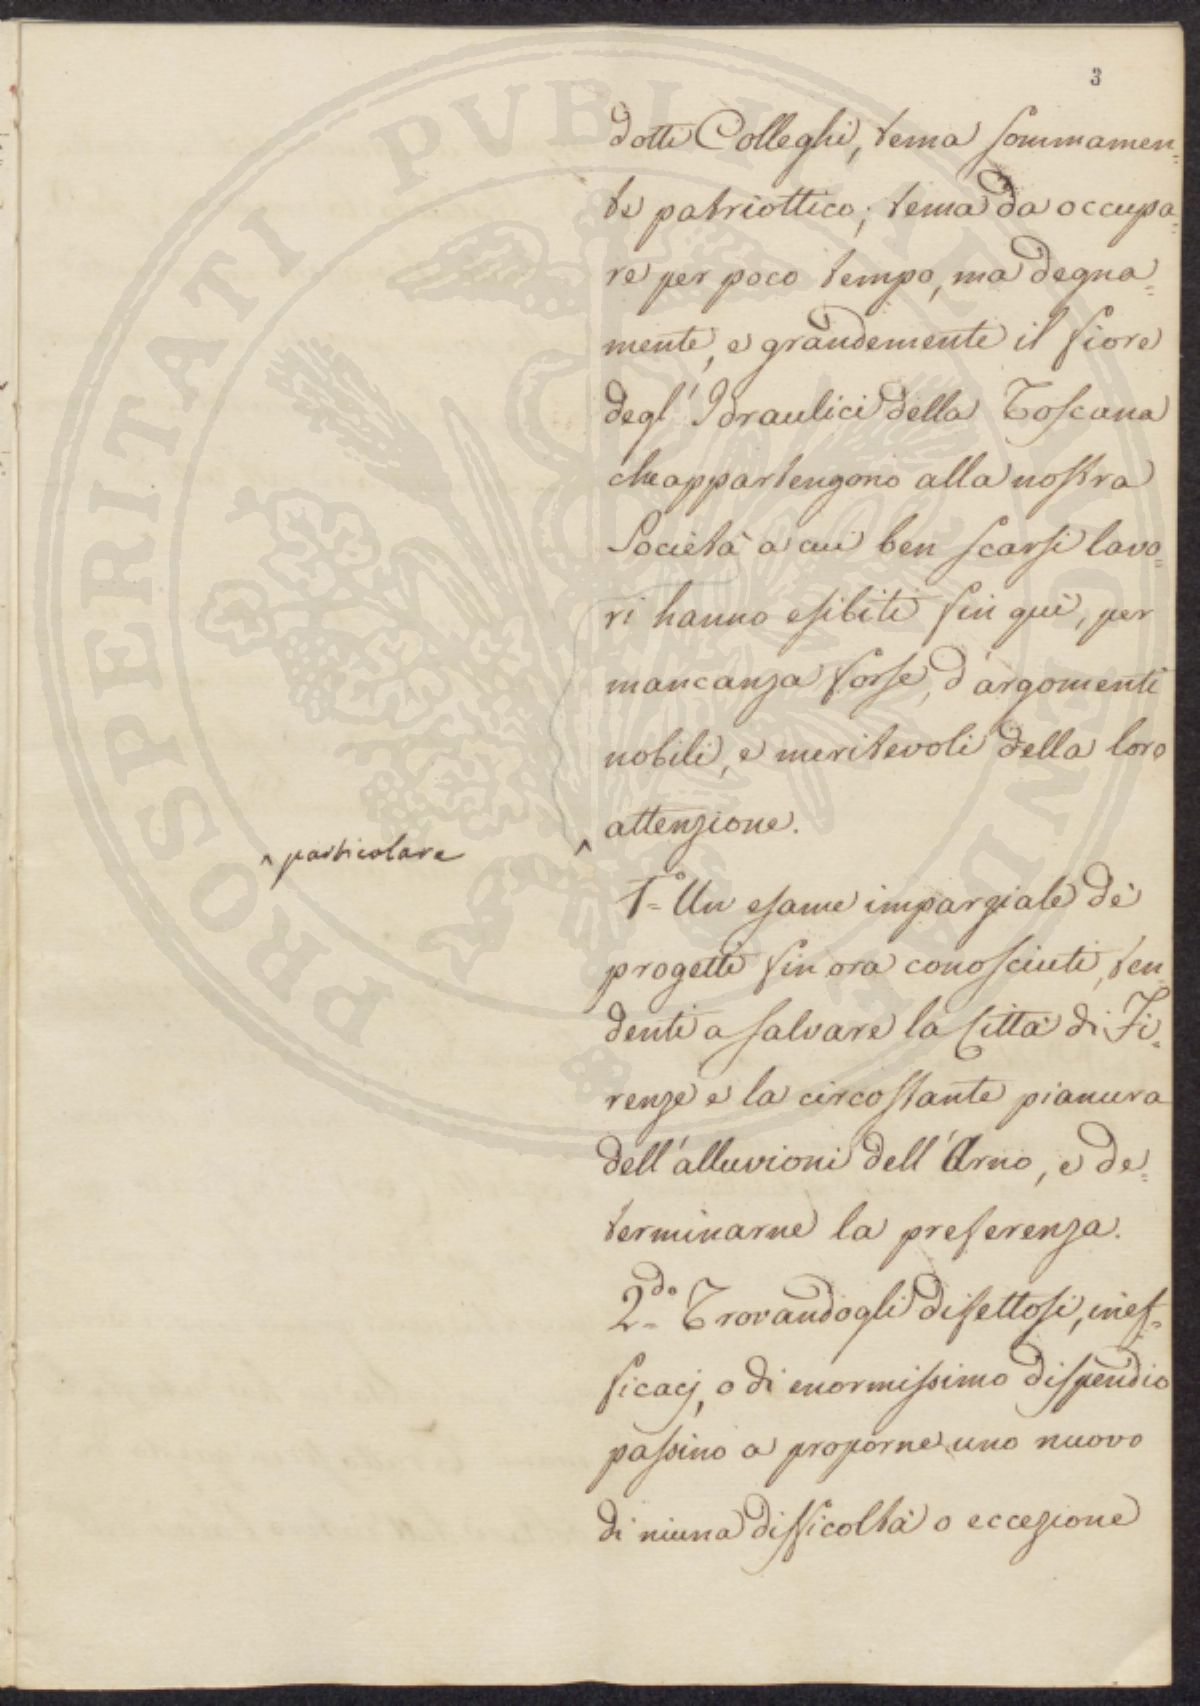 3
dotti Colleghi, tema sommamen=
te patriottico; tema da occupa=
re per poco tempo, ma degna=
mente, e grandemente il fiore
degl' Idraulici della Toscana
che appartengono alla nostra
Società a cui ben scarsi lavo=
ri hanno esibiti fin quì, per
mancanza forse, d'argomenti
nobili, e meritevoli della loro
^ particolare
^ attenzione.
1.° Un esame imparziale de'
progetti fin ora conosciuti, ten=
denti a salvare la Città di Fi=
renze e la circostante pianura
dell'alluvioni dell'Arno, e de=
terminarne la preferenza.
2.do Trovandogli difettosi, inef=
ficacj, o di enormissimo dispendio
passino a proporne uno nuovo
di niuna difficoltà o eccezione
PROSPERITATI PVBLICAE AVGENDAE